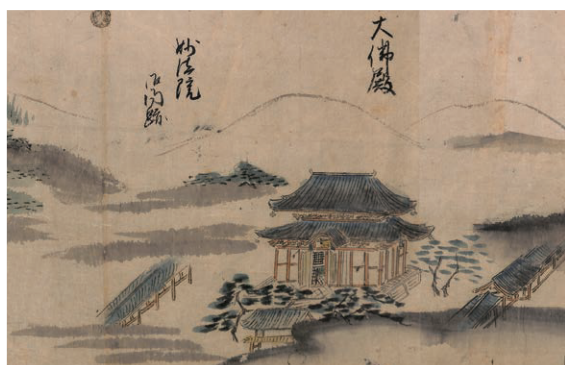 大佛殿
妙法院
御門跡